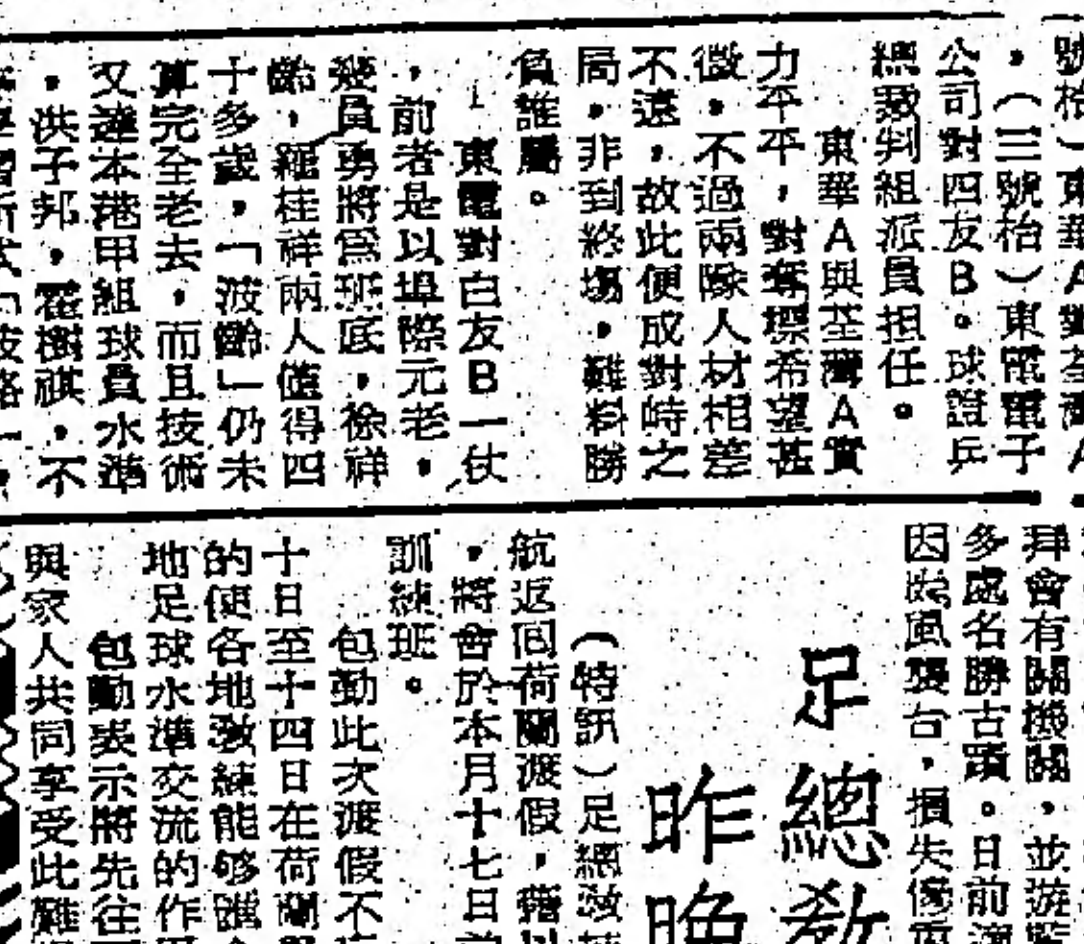 號枱)東華A對荃灣A
,(三號枱)東電電子
公司對四友B。球證乒
總裁判組派員担任。
東華A與荃灣A實
力平平,對奪標希望甚
微,不過兩隊人材相差
不遠,故此便成對峙之
局,非到終塲,難料勝
負誰屬。
東電對白友B一仗
,前者是以埠際元老,
幾員勇將爲班底,徐祥
齡,羅桂祥兩人僅得四
十多歲,「波齡」仍未
算完全老去,而且技術
又達本港甲組球員水準
,洪子邦,霍樹祺,不
拜會有關機關,並游
多處名勝古蹟。日前
因颱風襲台,損失
足總教
昨晚
(特訊)足總教
航返回荷蘭渡假,藉以
,將會於本月十七日
訓練班。
包勤此次渡假不
十日至十四日在荷蘭
的使各地教練能够
地足球水準交流的作
包勤表示將先往
與家人共同享受此